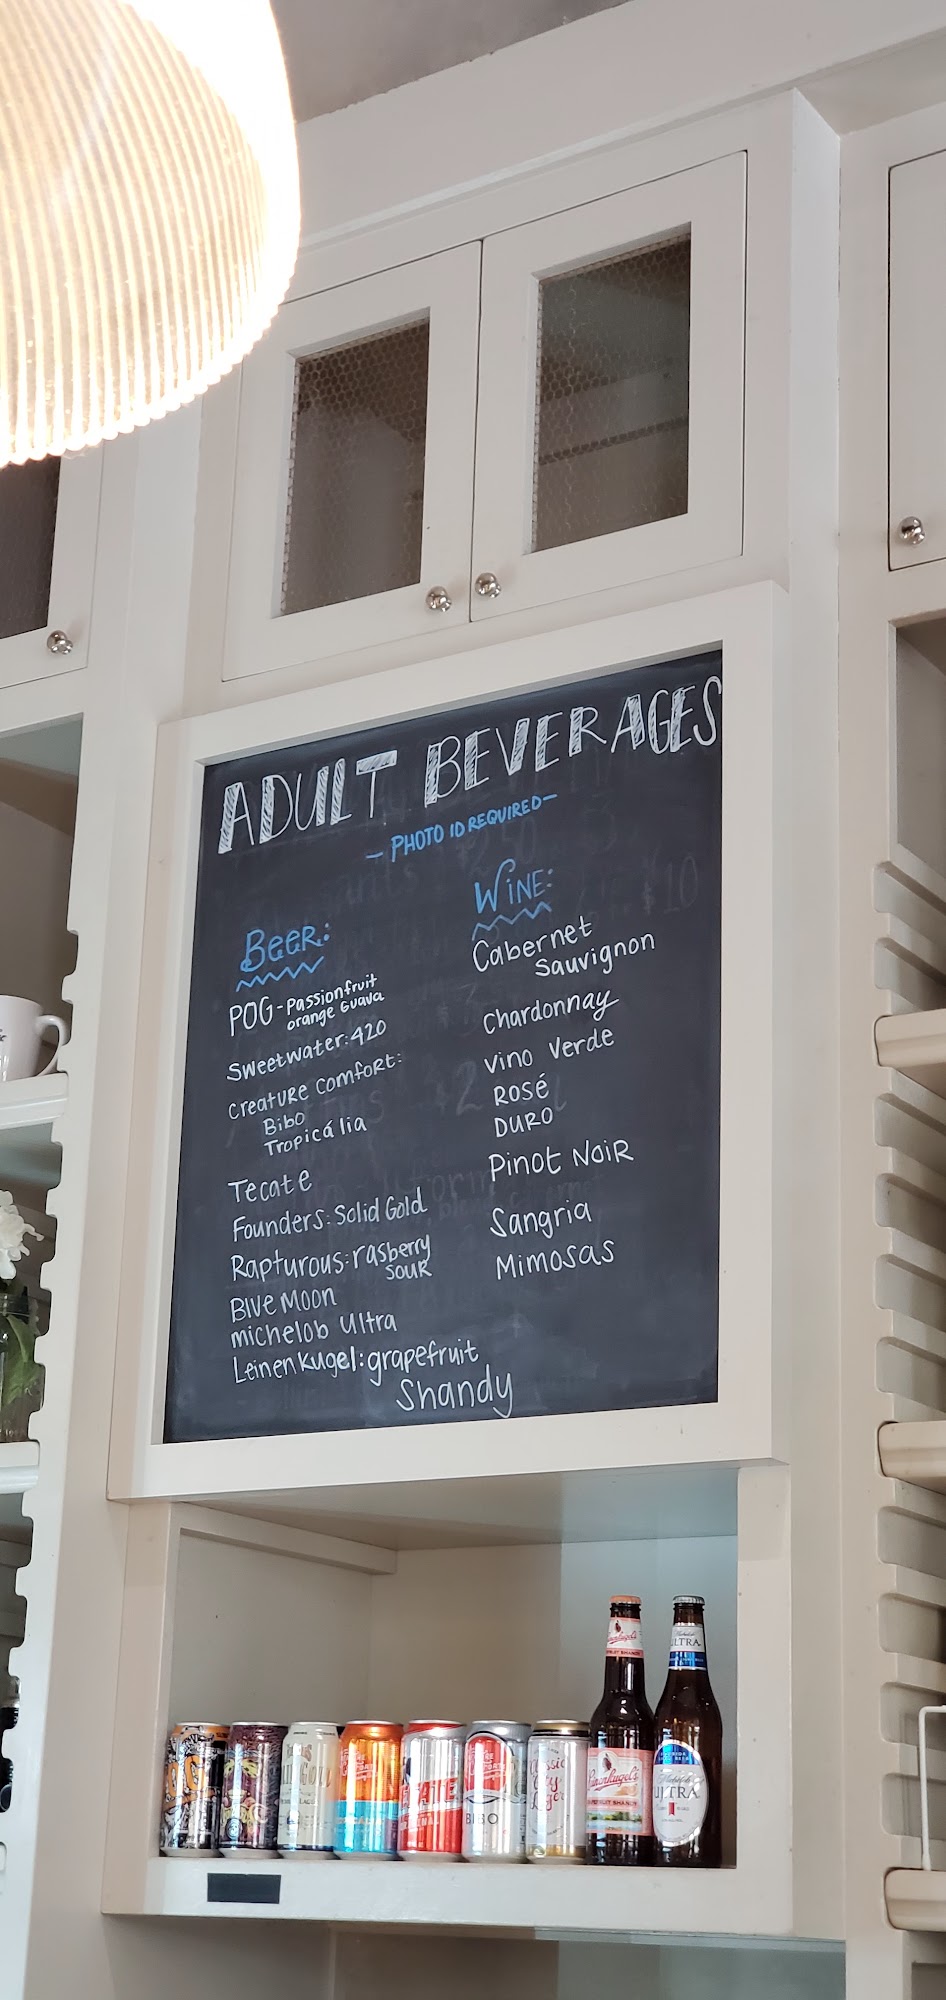 ADULT BEVERAGES
- PHOTO ID REQUIRED -
Beer:
POG - Passionfruit
orange Guava
Sweetwater: 420
Creature Comfort:
Bibo
Tropicália
Tecate
Founders: Solid Gold
Rapturous: rasberry
SOUR
Blue Moon
michelob Ultra
Leinenkugel: grapefruit
Shandy
Wine:
Cabernet
Sauvignon
Chardonnay
Vino Verde
ROSÉ
DURO
Pinot Noir
Sangria
Mimosas
BIBO
Classic
City
Lager
Leinenkugel's
ULTRA
ULTRA